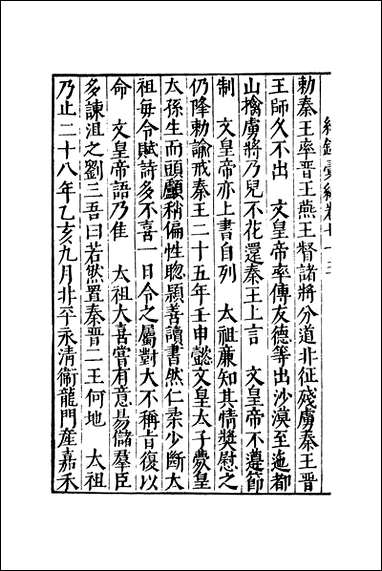 紀錄彙編卷七十三
勅秦王率晋王燕王督諸將分道北征殘虜秦王晋
王師久不出　文皇帝率傅友德等出沙漠至迤都
山擒虜將乃兒不花還秦王上言　文皇帝不遵節
制　文皇帝亦上書自列　太祖廉知其情獎慰之
仍降勅諭戒秦王二十五年壬申懿文皇太子薨皇
太孫生而頭顱稍偏性聰穎善讀書然仁柔少斷太
祖每令賦詩多不喜一日令之屬對大不稱旨復以
命　文皇帝語乃佳　太祖大喜嘗有意易儲羣臣
多諫沮之劉三吾曰若然置秦晋二王何地　太祖
乃止二十八年乙亥九月北平永清衞龍門産嘉禾